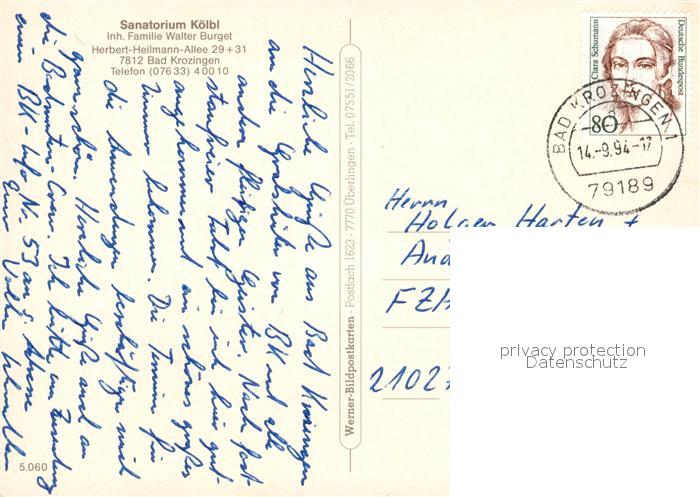 Sanatorium Kölbl
Inh. Familie Walter Burget
Herbert-Heilmann-Allee 29+31
7812 Bad Krozingen
Telefon (07633) 40010
Herzliche Grüße aus Bad Krozingen
an die Gratshilfe von BK und alle
andern fleißigen Geister. Nach fast
staufreier Fahrt bin ich hier gut
angekommen und ein schönes großes
Zimmer bekommen. Die Termine für
die Anwendungen beschäftigen mich
ganz schön. Herzliche Grüße auch an
die Crew. Ich bitte um Zusendung
einer BK-Info Nr. 53 an o. Adresse
Euer
5.060
Werner-Bildpostkarten · Postfach 1623 · 7770 Überlingen · Tel. 07551/2066
Clara Schumann
Deutsche Bundespost
80
BAD KROZINGEN 1
14.-9.94-17
79189
Herrn
Holger Harten +
And
FZH
21027
privacy protection
Datenschutz